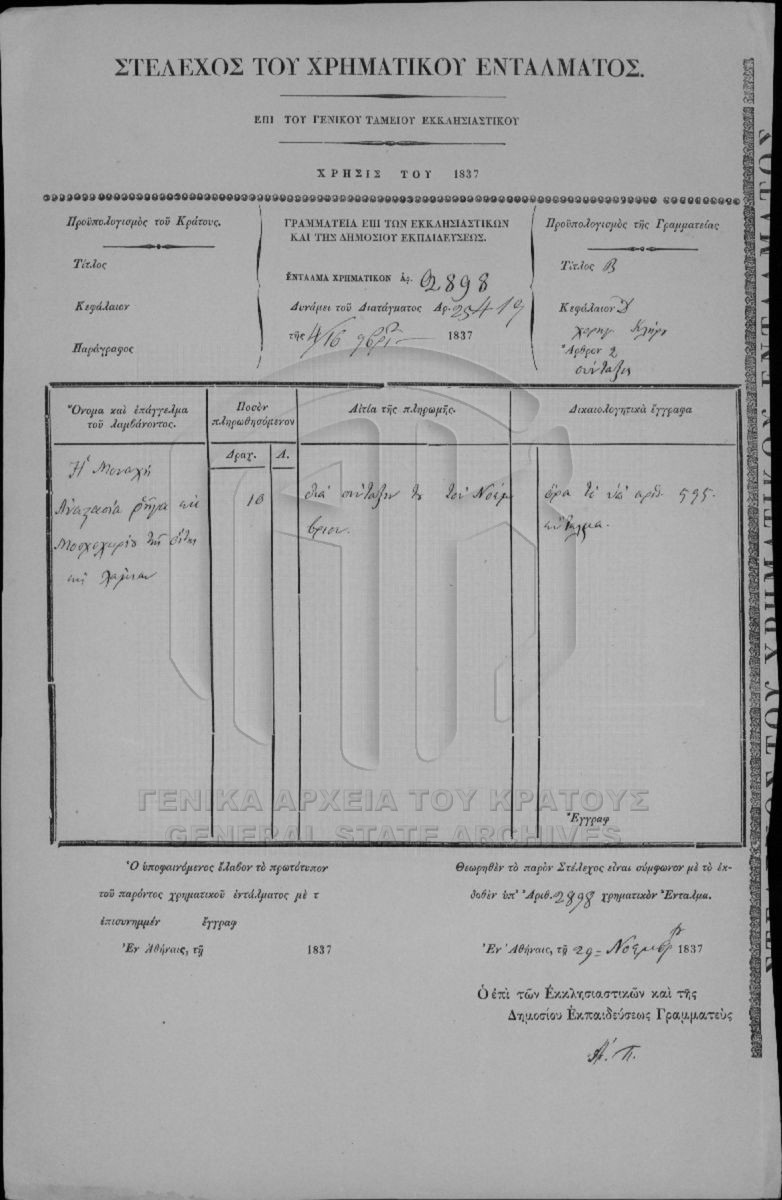 ΣΤΕΛΕΧΟΣ ΤΟΥ ΧΡΗΜΑΤΙΚΟΥ ΕΝΤΑΛΜΑΤΟΣ.
ΕΠΙ ΤΟΥ ΓΕΝΙΚΟΥ ΤΑΜΕΙΟΥ ΕΚΚΛΗΣΙΑΣΤΙΚΟΥ
ΧΡΗΣΙΣ ΤΟΥ 1837
Προϋπολογισμὸς τοῦ Κράτους.
Τίτλος
Κεφάλαιον
Παράγραφος
ΓΡΑΜΜΑΤΕΙΑ ΕΠΙ ΤΩΝ ΕΚΚΛΗΣΙΑΣΤΙΚΩΝ
ΚΑΙ ΤΗΣ ΔΗΜΟΣΙΟΥ ΕΚΠΑΙΔΕΥΣΕΩΣ.
ΕΝΤΑΛΜΑ ΧΡΗΜΑΤΙΚΟΝ Ἀρ. 2898
Δυνάμει τοῦ Διατάγματος Ἀρ. 25419
τῆς 4/16 9βρίου 1837
Προϋπολογισμὸς τῆς Γραμματείας
Τίτλος Β
Κεφάλαιον Δ
χορηγ. Κλήρου
Ἄρθρον 2
σύνταξις
Ὄνομα καὶ ἐπάγγελμα
τοῦ λαμβάνοντος.
Ποσὸν
πληρωθησόμενον
Δραχ. Λ.
Αἰτία τῆς πληρωμῆς.
Δικαιολογητικὰ ἔγγραφα
Ἡ Μοναχὴ
Ἀναστασία
Μοσχοχωρίου τῆς
10
διὰ σύνταξιν τοῦ Νοεμ
βρίου.
ὅρα τὸ ὑπ' ἀριθ. 595.
ἔνταλμα.
Ἔγγραφ
ΓΕΝΙΚΑ ΑΡΧΕΙΑ ΤΟΥ ΚΡΑΤΟΥΣ
GENERAL STATE ARCHIVES
Ὁ ὑποφαινόμενος ἔλαβον τὸ πρωτότυπον
τοῦ παρόντος χρηματικοῦ ἐντάλματος μὲ τ
ἐπισυνημμέν ἔγγραφ
Ἐν Ἀθήναις, τῇ 1837
Θεωρηθὲν τὸ παρὸν Στέλεχος εἶναι σύμφωνον μὲ τὸ ἐκ-
δοθὲν ὑπ' Ἀριθ. 2898 χρηματικὸν Ἔνταλμα.
Ἐν Ἀθήναις, τῇ 29 Νοεμβρ 1837
Ὁ ἐπὶ τῶν Ἐκκλησιαστικῶν καὶ τῆς
Δημοσίου Ἐκπαιδεύσεως Γραμματεὺς
Ἀ. Π.